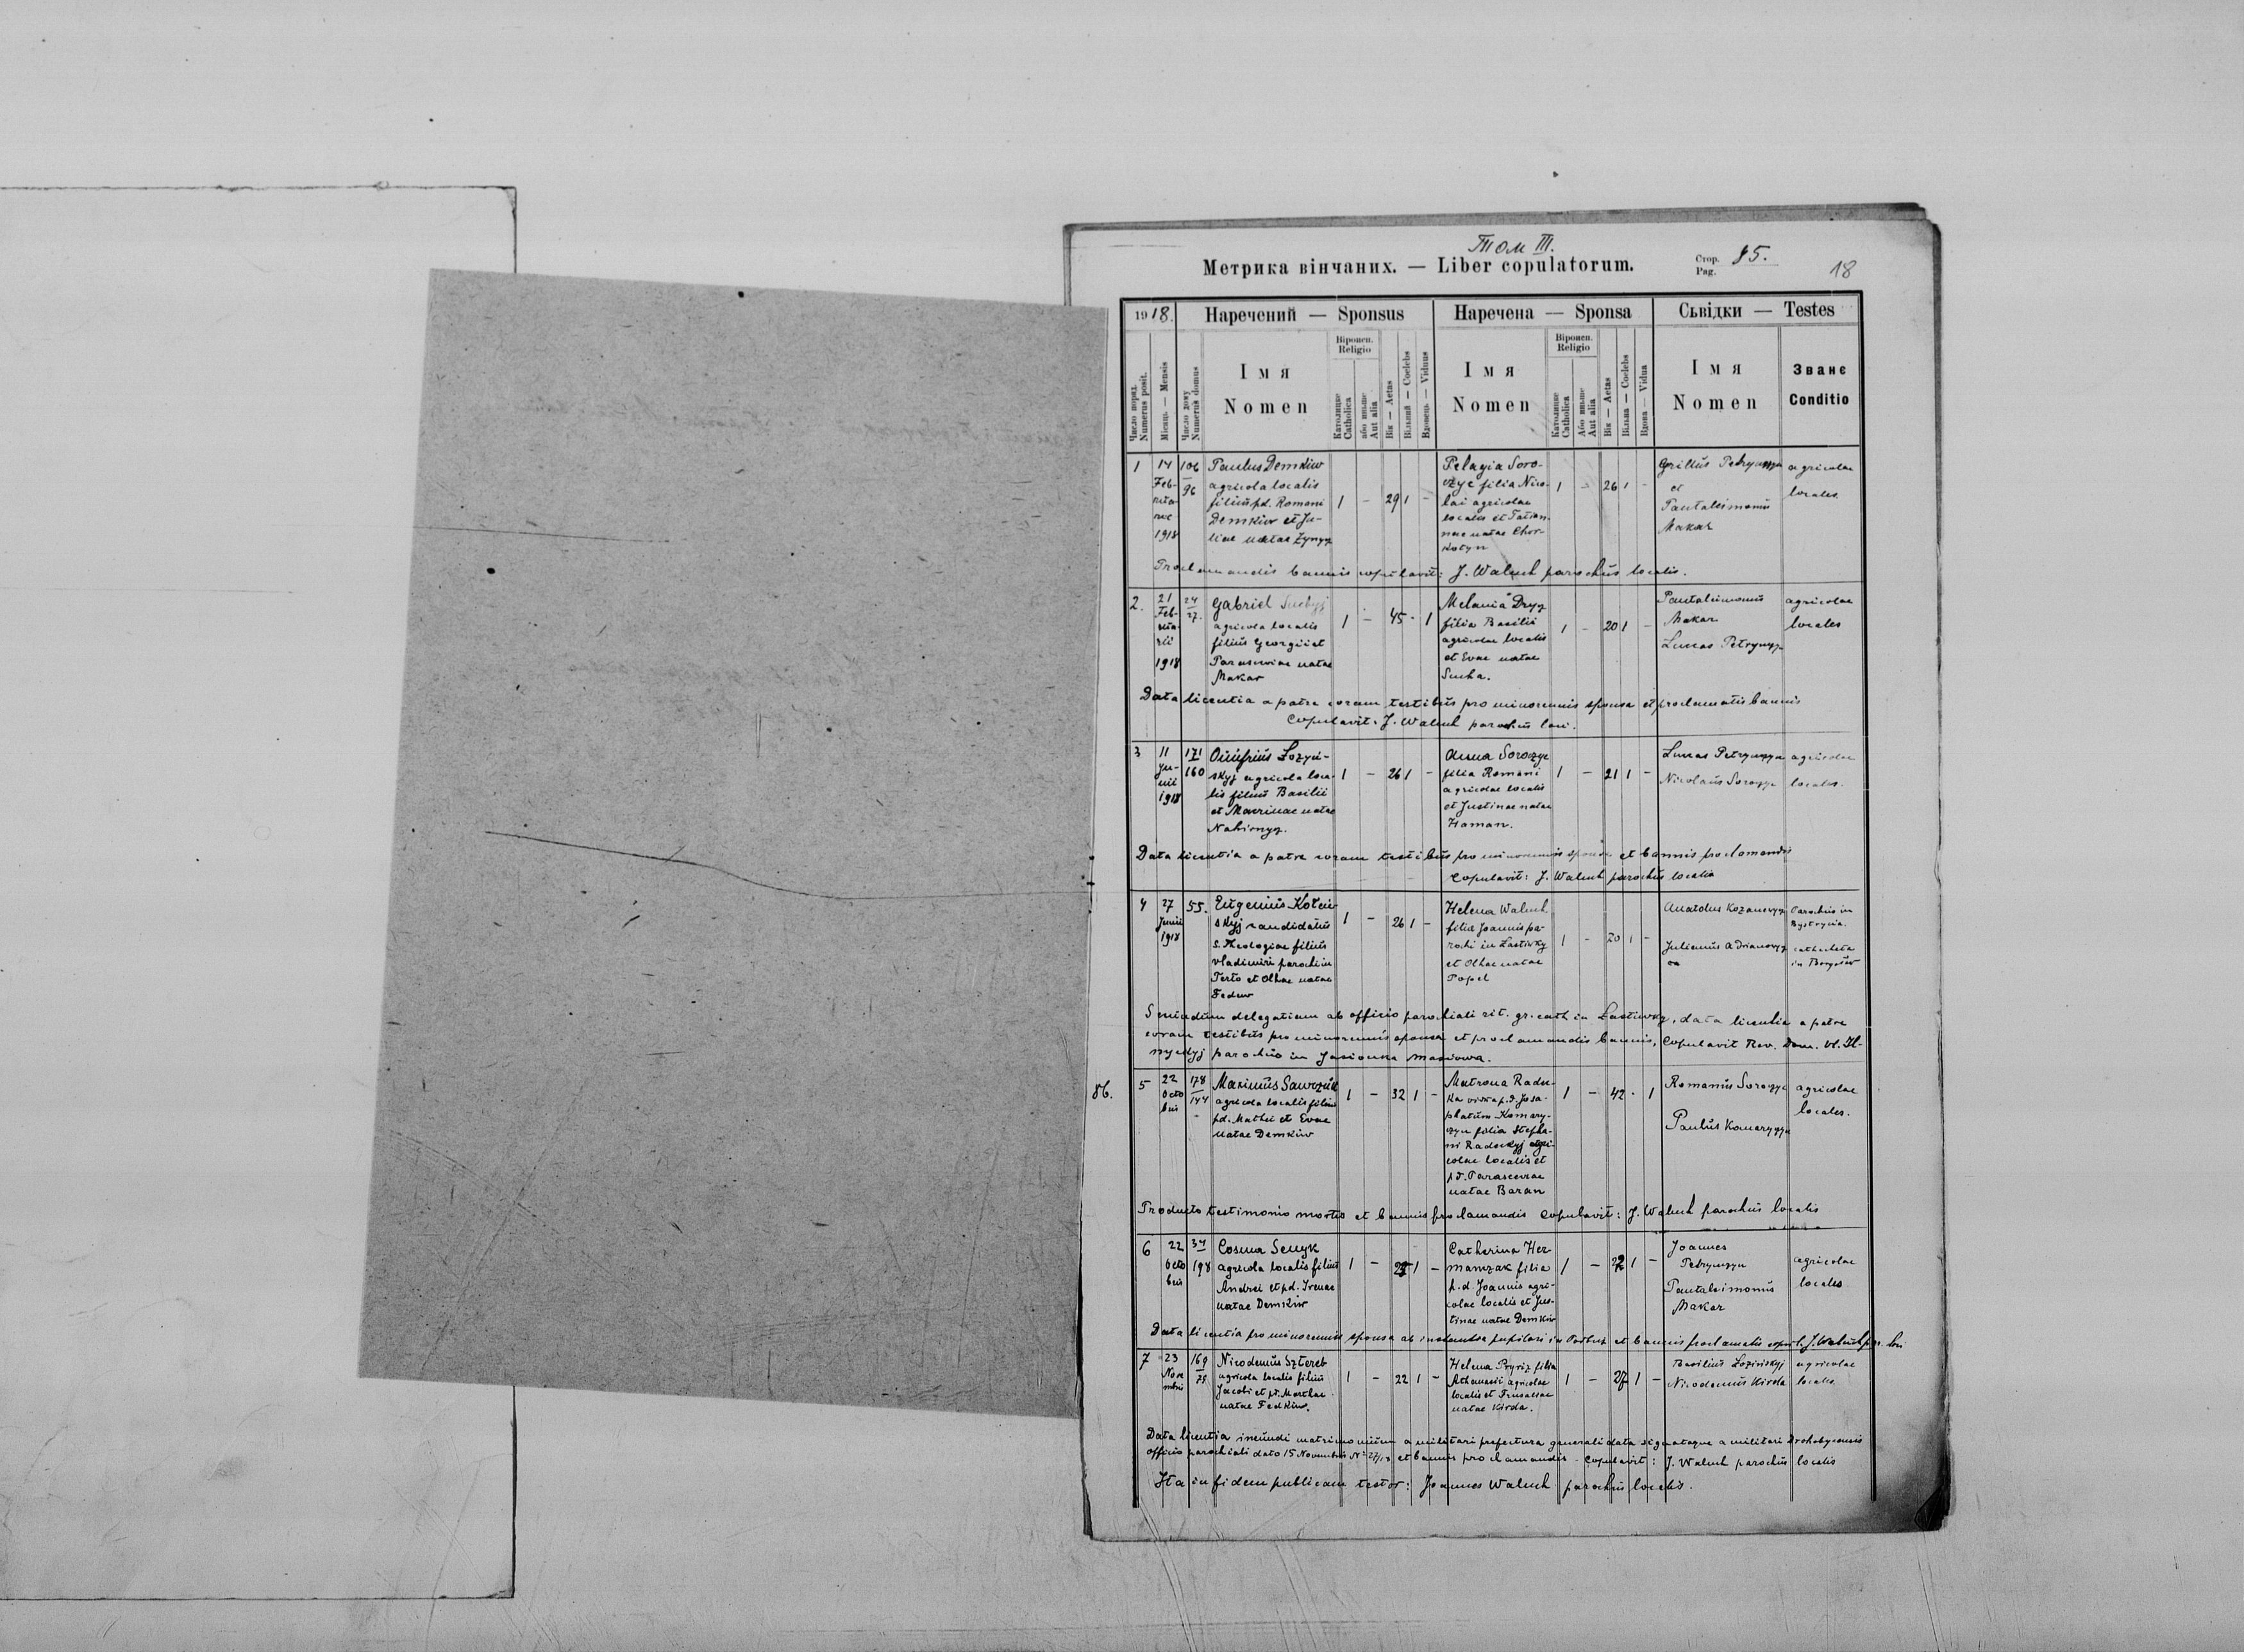 Том III.
Метрика вінчаних. — Liber copulatorum.
Стор. Pag. 85.
18
1918.
Наречений — Sponsus
Наречена — Sponsa
Сьвідки — Testes
Число поряд. Numerus posit.
Місяць — Mensis
Число дому Numerus domus
Імя
Nomen
Віроісп. Religio
Католицке Catholica
або иньше Aut alia
Вік — Aetas
Вільний — Coelebs
Вдовець — Viduus
Імя
Nomen
Віроісп. Religio
Католицке Catholica
Або иньше Aut alia
Вік — Aetas
Вільна — Coelebs
Вдова — Vidua
Імя
Nomen
Званє
Conditio
1
14 Februariae 1918
106
96
Paulus Demkiw
agricola localis
filius pd. Romani
Demkiw et Ju-
liae natae Żynycz
1 – 29 1 –
Pelagia Soro-
czyc filia Nico-
lai agricolae
localis et Tatian-
nae natae Chor-
kotyn
1 – 26 1 –
Petrynycz
et
Pantaleimonus
Makar
agricolae
locales.
Proclamandis bannis copulavit: J. Waluch parochus localis.
2.
21 Februarii 1918
24
27.
Gabriel Suchyj
agricola localis
filius Georgii et
Parasceviae natae
Makar
1 – 45 · 1
Melania Dryz
filia Basilii
agricolae localis
et Evae natae
Sucha.
1 – 20 1 –
Pantaleimonus
Makar
Lucas Petrynycz
agricolae
locales
Data licentia a patre coram testibus pro minorennis sponsa et proclamatis bannis
Copulavit: J. Waluch parochus loci.
3
11 Junii 1918
171
160
Onufrius Łozyń-
skyj agricola loca-
lis filius Basilii
et Marinae natae
Nahirnycz.
1 – 26 1 –
Anna Soroczyc
filia Romani
agricolae localis
et Justinae natae
Haman.
1 – 21 1 –
Lucas Petrynycz
Nicolaus Soroczyc
agricolae
locales.
Data licentia a patre coram testibus pro minorennis sponsa et bannis proclamandis
Copulavit: J. Waluch parochus localis
4
27 Junii 1918
55.
Eugenius Koteń-
skyj candidatus
s. Theologiae filius
Vladimiri parochi in
Terło et Olhae natae
Fedew
1 – 26 1 –
Helena Waluch
filia Joannis pa-
rochi in Lastivky
et Olhae natae
Popel
1 – 20 1 –
Anatolus Kozanevycz
Julianus Adrianovycz
Parochus in
Bystrycia.
catheheta
in Borysław
delegatiam ab officio parochiali rit. gr. cath in Lastivky, data licentia a patre
coram testibus pro minorennis sponsa et proclamandis bannis, Copulavit Rev. Dom. Vl. Il-
nyckyj parocho in Jasionka Masiowa.
86.
5
22 Octobris
178
144
Maximus Sawczuk
agricola localis filius
pd. Mathei et Evae
natae Demkiw
1 – 32 1 –
Matrona Radec-
ka vidua p.d. Josa-
phatum Komary-
czyn filia Stepha-
ni Radeckyj agri-
colae localis et
pd. Parasceviae
natae Baran
1 – 42 · 1
Romanus Soroczyc
Paulus Komarycyn
agricolae
locales.
Producto testimonio mortis et bannis proclamandis Copulavit: J. Waluch parochus localis
6
22 Octobris
34
198
Cosma Senyk
agricola localis filius
Andrei et pd. Irenae
natae Demkiw
1 – 1 –
Catherina Her-
manczak filia
p.d. Joannis agri-
colae localis et Jus-
tinae natae Demkiw
1 – 1 –
Joannes
Petrynycz
Pantaleimonus
Makar
agricolae
locales
Data licentia pro minorennis sponsa ab instantia pupilari in Podbuż et bannis proclamatis copul. J. Waluch par. loci
7
23 Novembris
169
75
Nicodemus Sztereb
agricola localis filius
Jacobi et pd. Marthae
natae Fedkiw.
1 – 22 1 –
Helena Pryriz filia
Athanasii agricolae
localis et
natae Kirda.
1 – 27 1 –
Basilius Łozinskyj
Nicodemus Kirda
agricolae
locales
Data licentia ineundi matrimonium a militari prefectura generali data signataque a militari Drohobycensis
officio parochiali dato 15 Novembris N 27/18 et bannis proclamandis - Copulavit: J. Waluch parochus localis
Ita in fidem publicam testor: Joannes Waluch parochus localis.